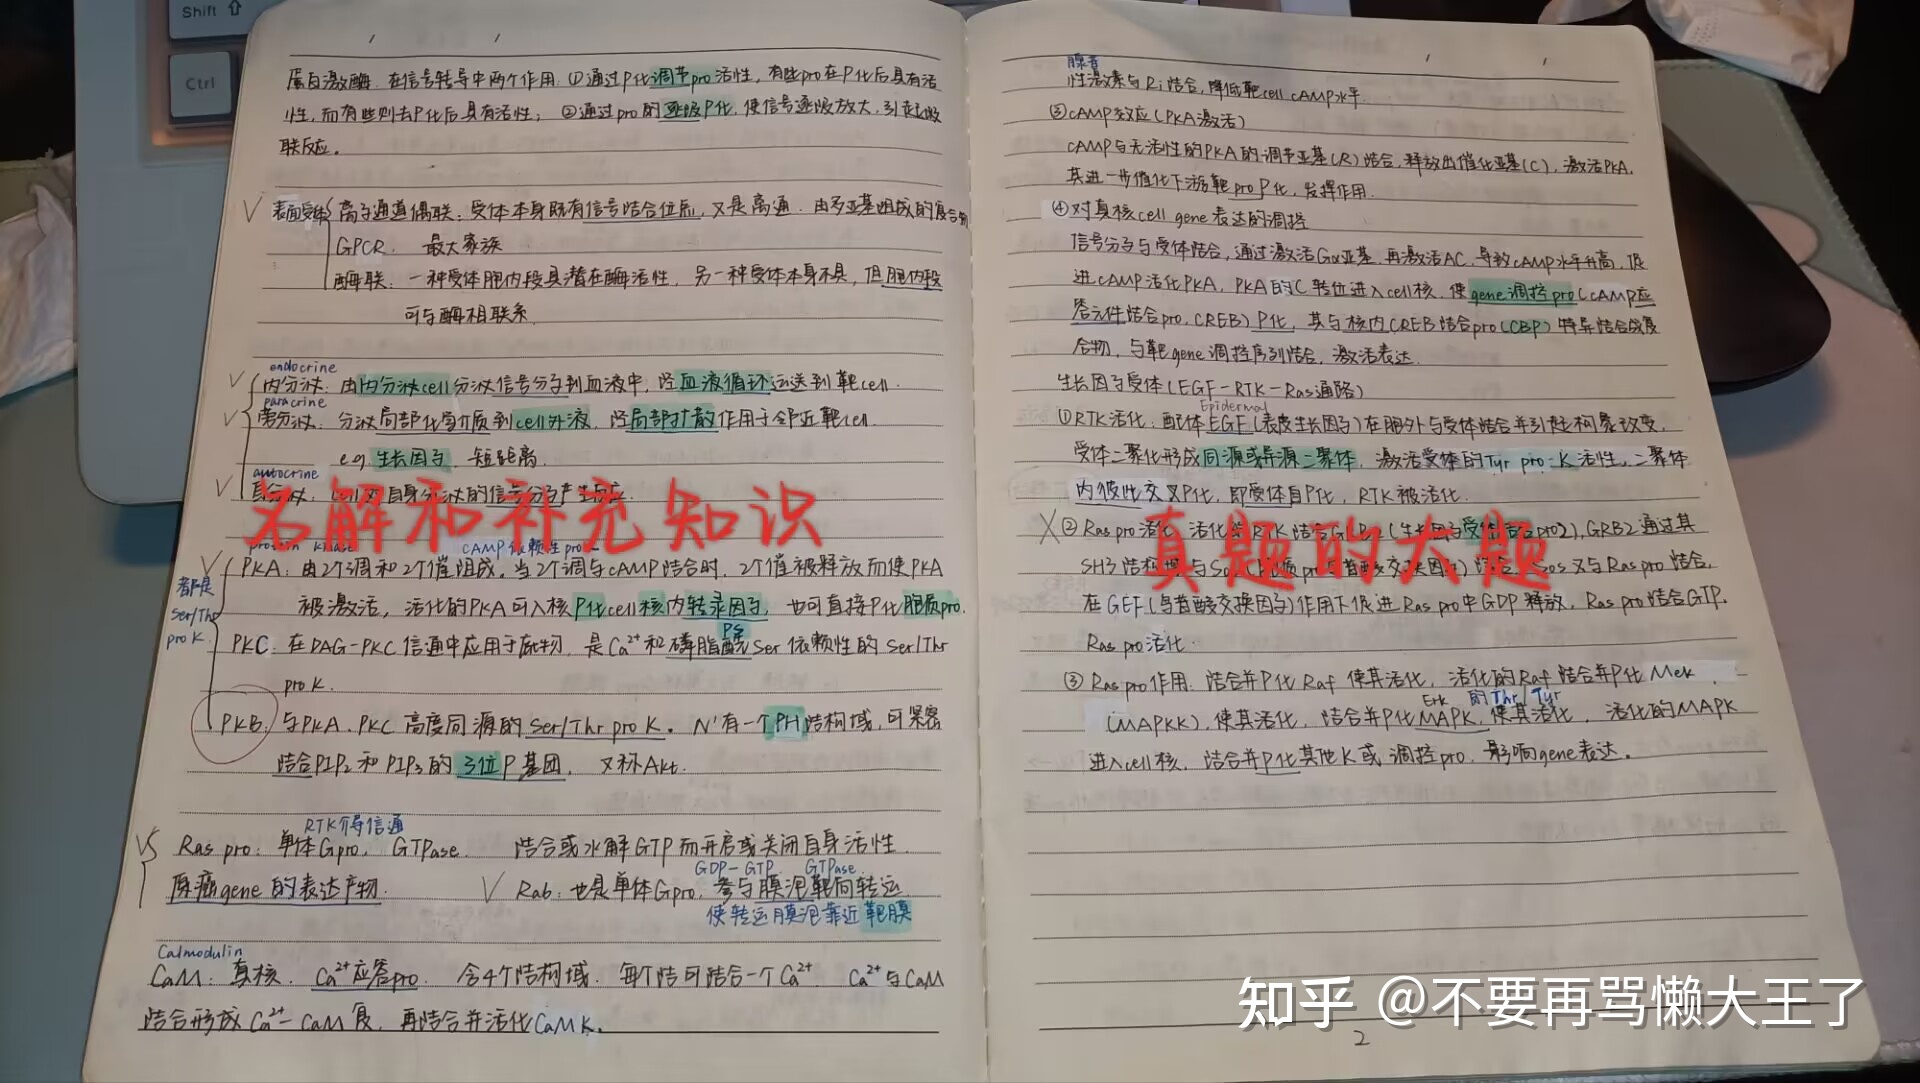 Shift ⇧
Ctrl
蛋白激酶. 在信号转导中两个作用. ①通过P化调节pro活性, 有些pro在P化后具有活
性, 而有些则去P化后具有活性; ②通过pro的逐级P化, 使信号逐级放大, 引起级
联反应。
表面受体 离子通道偶联: 受体本身既有信号结合位点, 又是离通. 由多亚基组成的复合物
GPCR: 最大家族
酶联: 一种受体胞内段具潜在酶活性, 另一种受体本身不具, 但胞内段
可与酶相联系.
endocrine
内分泌: 由内分泌cell分泌信号分子到血液中, 经血液循环运送到靶cell.
paracrine
旁分泌: 分泌局部化学介质到cell外液, 经局部扩散作用于邻近靶cell.
e.g. 生长因子. 短距离.
autocrine
自分泌: cell对自身分泌的信号分子产生反应.
名解和补充知识
protein kinase cAMP依赖性pro
都是
Ser/Thr
pro K.
PKA: 由2个调和2个催组成. 当2个调与cAMP结合时, 2个催被释放而使PKA
被激活, 活化的PKA可入核P化cell核内转录因子, 也可直接P化胞质pro.
PS
PKC: 在DAG-PKC信通中应用于底物. 是Ca²⁺和磷脂酰Ser依赖性的Ser/Thr
pro K.
PKB: 与PKA. PKC高度同源的Ser/Thr pro K. N'有一个PH结构域, 可紧密
结合PIP₂和PIP₃的3位P基团. 又称Akt.
RTK介导信通
Ras pro: 单体Gpro, GTPase. 结合或水解GTP而开启或关闭自身活性.
GDP-GTP GTPase
原癌gene的表达产物. Rab: 也是单体Gpro, 参与膜泡靶向转运
使转运膜泡靠近靶膜
Calmodulin
CaM: 真核. Ca²⁺应答pro. 含4个结构域. 每个结可结合一个Ca²⁺. Ca²⁺与CaM
结合形成Ca²⁺-CaM复, 再结合并活化CaMK.
性激素与Ri结合, 降低靶cell cAMP水平.
③cAMP效应(PKA激活)
cAMP与无活性的PKA的调节亚基(R)结合, 释放出催化亚基(C), 激活PKA.
其进一步催化下游靶pro P化, 发挥作用.
④对真核cell gene表达的调控
信号分子与受体结合, 通过激活Gα亚基. 再激活AC, 导致cAMP水平升高, 促
进cAMP活化PKA, PKA的C转位进入cell核, 使gene调控pro(cAMP应
答元件结合pro, CREB) P化, 其与核内CREB结合pro(CBP)特异结合成复
合物, 与靶gene调控序列结合, 激活表达.
生长因子受体(EGF-RTK-Ras通路)
Epidermal
①RTK活化: 配体EGF(表皮生长因子)在胞外与受体结合并引起构象改变.
受体二聚化形成同源或异源二聚体, 激活受体的Tyr pro-K活性, 二聚体
内彼此交叉P化, 即受体自P化, RTK被活化.
真题的大题
②Ras pro活化: 活化的RTK结合GRB2(生长因子受体结合pro2), GRB2通过其
SH3结构域与Sos结合, Sos又与Ras pro结合,
在GEF(鸟苷酸交换因子)作用下促进Ras pro中GDP释放, Ras pro结合GTP.
Ras pro活化.
③Ras pro作用: 结合并P化Raf使其活化, 活化的Raf结合并P化Mek
Erk 的Thr/Tyr
(MAPKK), 使其活化, 结合并P化MAPK, 使其活化. 活化的MAPK
进入cell核. 结合并P化其他K或调控pro, 影响gene表达.
2
知乎 @不要再骂懒大王了